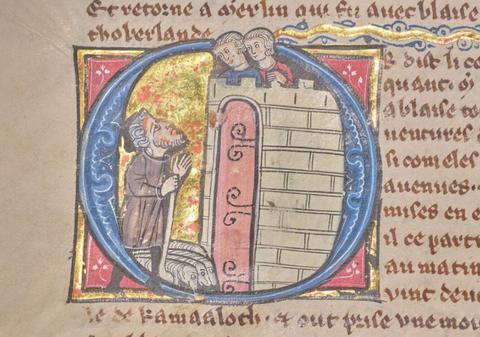 Et retorne a merlin qui fu avec blaise
thoberlande
OR dist li co
quant
ablaise to
uentures
si com eles
auenues.
mises en e
il ce part
au matin
vint
le de kamaaloth. out prise vne moi